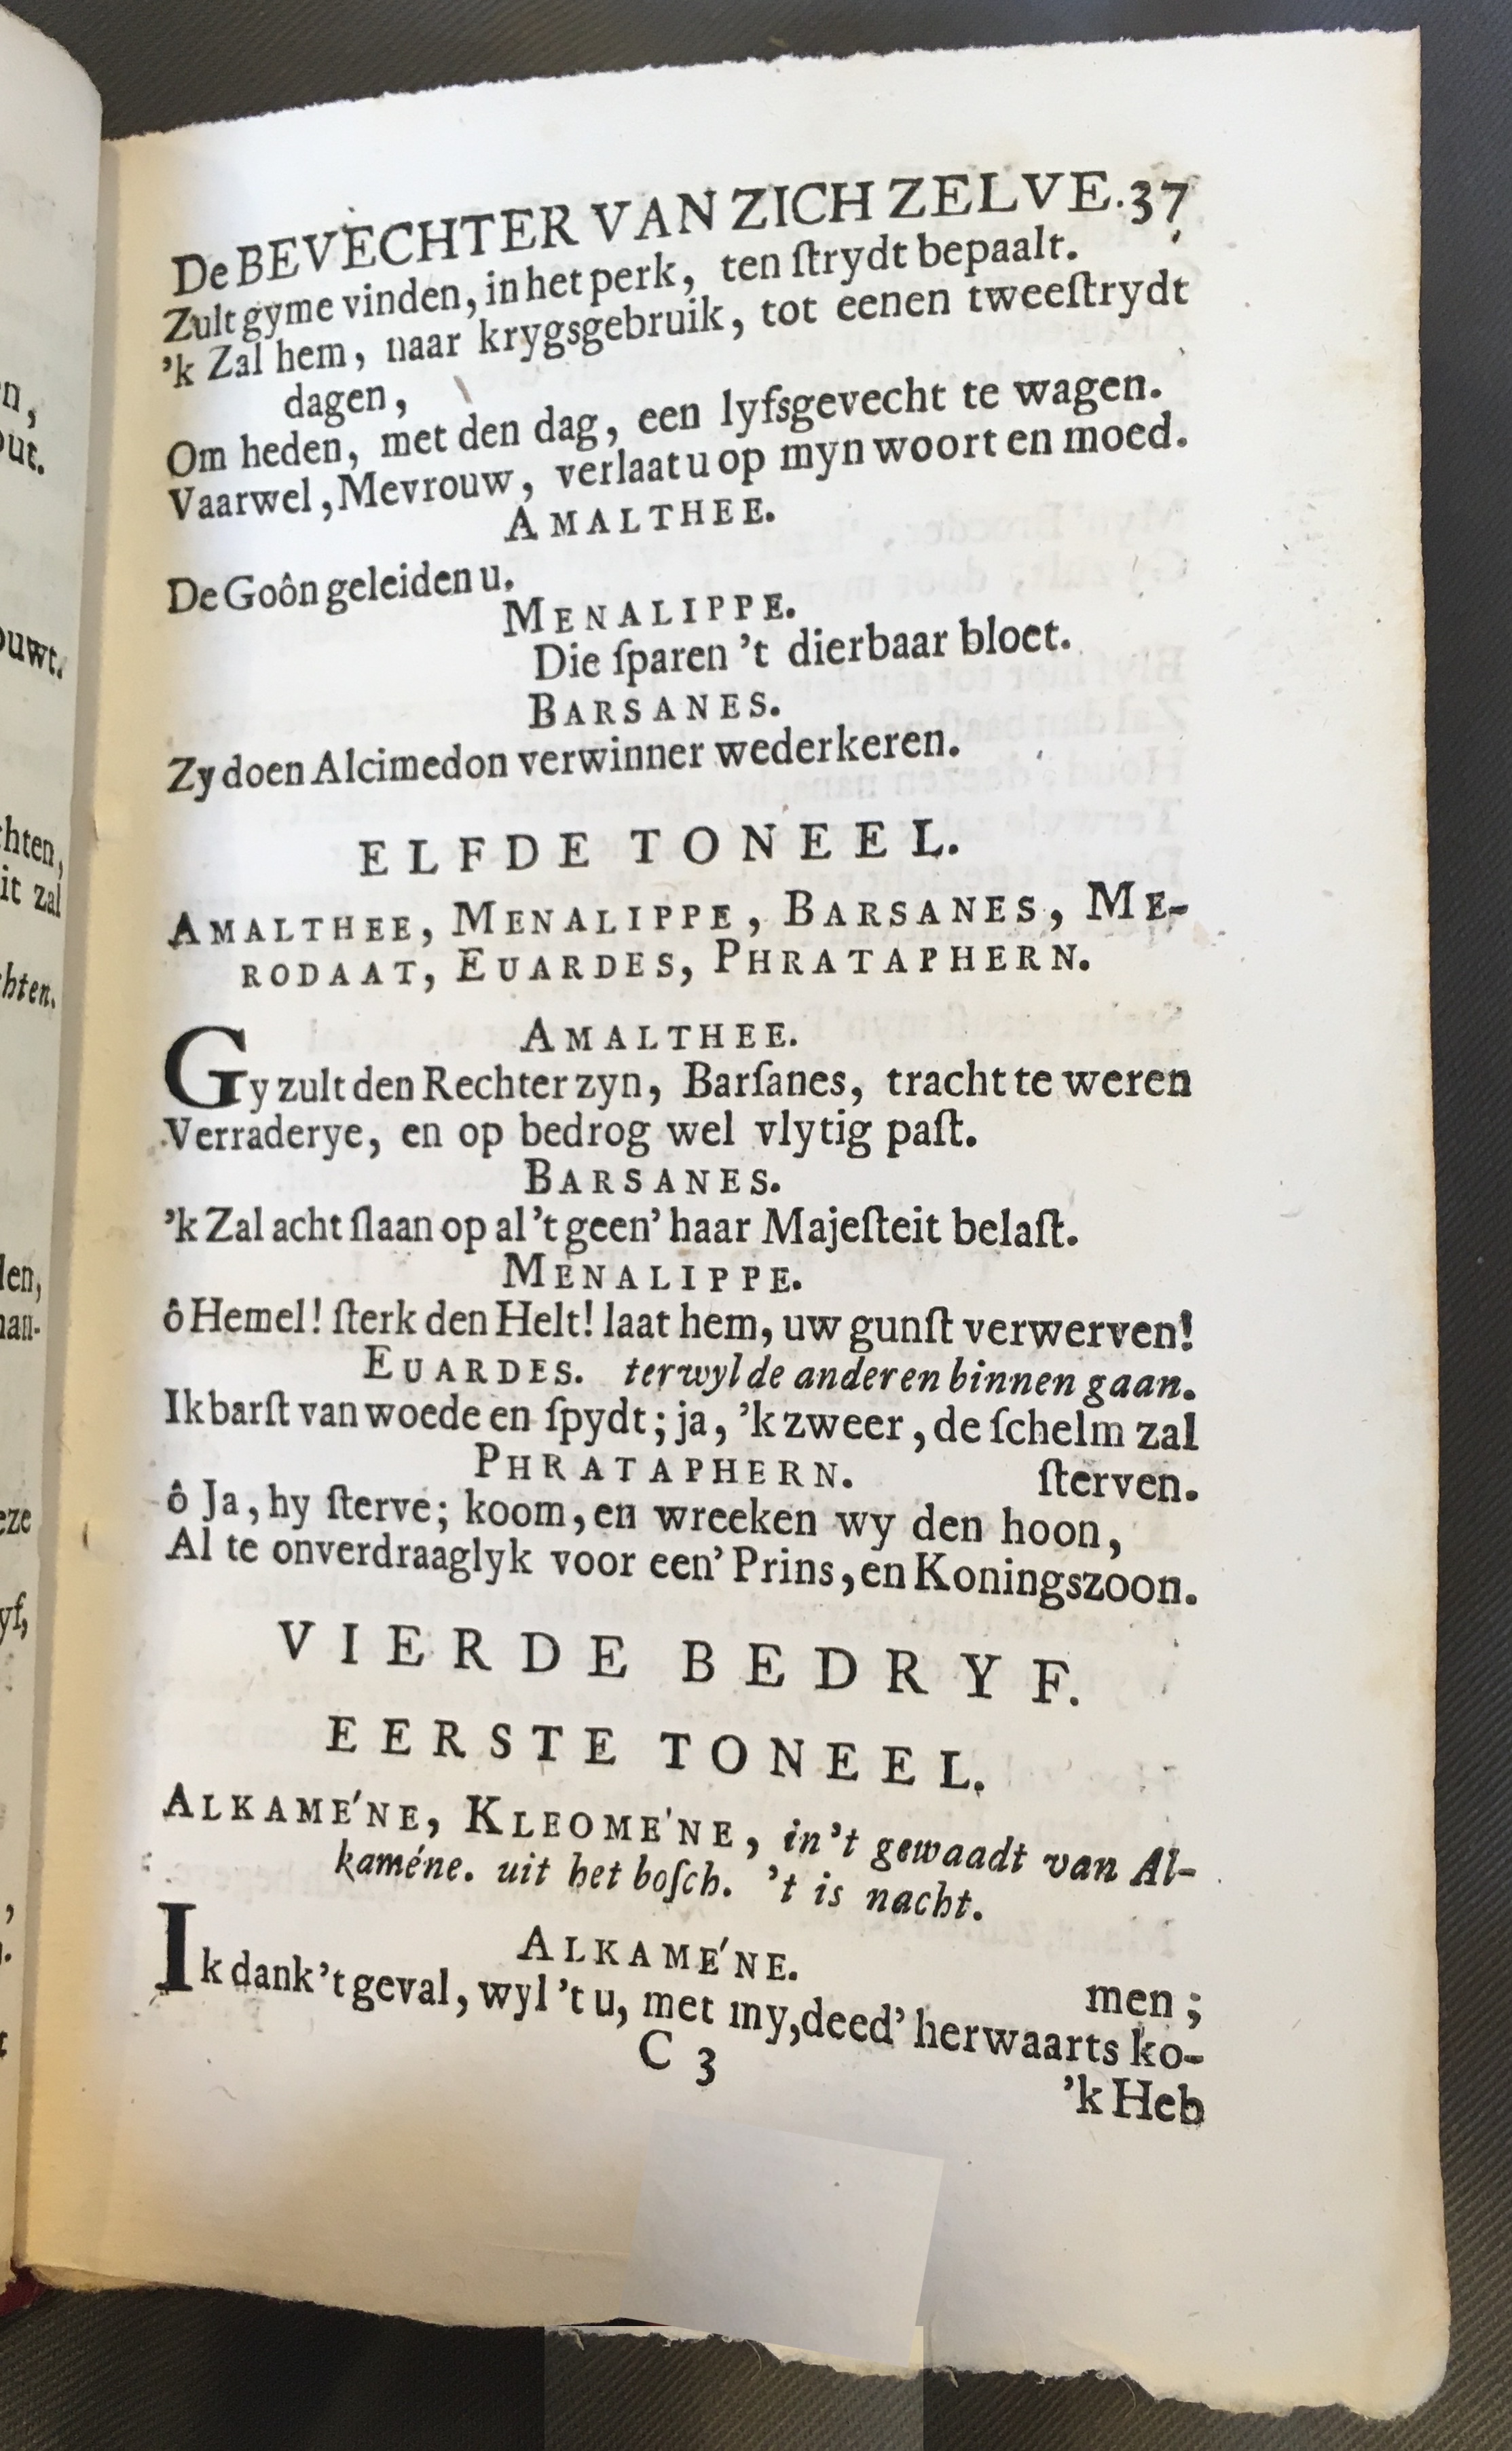 De BEVECHTER VAN ZICH ZELVE. 37
Zult gy me vinden, in het perk, ten ſtrydt bepaalt.
'k Zal hem, naar krygsgebruik, tot eenen tweeſtrydt
dagen,
Om heden, met den dag, een lyfsgevecht te wagen.
Vaarwel, Mevrouw, verlaat u op myn woort en moed.
AMALTHEE.
De Goôn geleiden u.
MENALIPPE.
Die ſparen 't dierbaar bloet.
BARSANES.
Zy doen Alcimedon verwinner wederkeren.
ELFDE TONEEL.
AMALTHEE, MENALIPPE, BARSANES, ME-
RODAAT, EUARDES, PHRATAPHERN.
AMALTHEE.
Gy zult den Rechter zyn, Barſanes, tracht te weren
Verraderye, en op bedrog wel vlytig paſt.
BARSANES.
'k Zal acht ſlaan op al 't geen' haar Majeſteit belaſt.
MENALIPPE.
ô Hemel! ſterk den Helt! laat hem, uw gunſt verwerven!
EUARDES. terwyl de anderen binnen gaan.
Ik barſt van woede en ſpydt; ja, 'k zweer, de ſchelm zal
PHRATAPHERN. ſterven.
ô Ja, hy ſterve; koom, en wreeken wy den hoon,
Al te onverdraaglyk voor een' Prins, en Koningszoon.
VIERDE BEDRYF.
EERSTE TONEEL.
ALKAME'NE, KLEOME'NE, in 't gewaadt van Al-
kaméne. uit het boſch. 't is nacht.
ALKAME'NE. men;
Ik dank 't geval, wyl 't u, met my, deed' herwaarts ko-
C 3
'k Heb
n,
out.
ouwt.
chten,
it zal
chten.
len,
nan-
eze
yf,